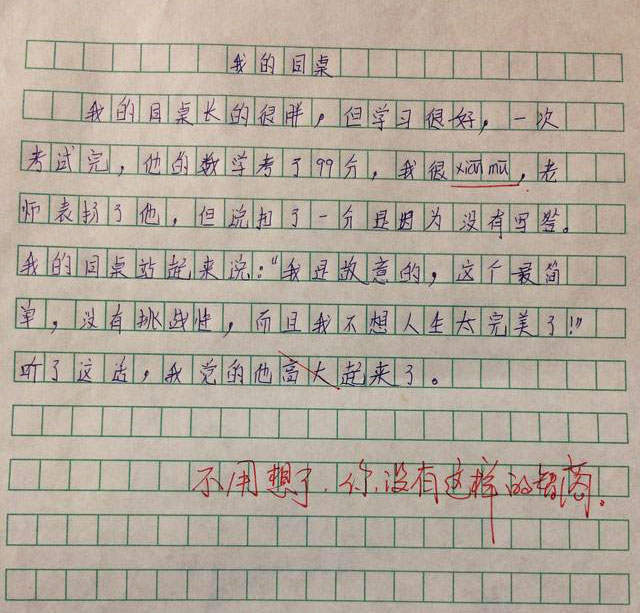 我的同桌
我的同桌长的很胖，但学习很好，一次
考试完，他的数学考了99分，我很xiān mù，老
师表扬了他，但说扣了一分是因为没有写答。
我的同桌站起来说：“我是故意的，这个最简
单，没有挑战性，而且我不想人生太完美了！”
听了这话，我觉的他高大起来了。
不用想了，你没有这样的智商。